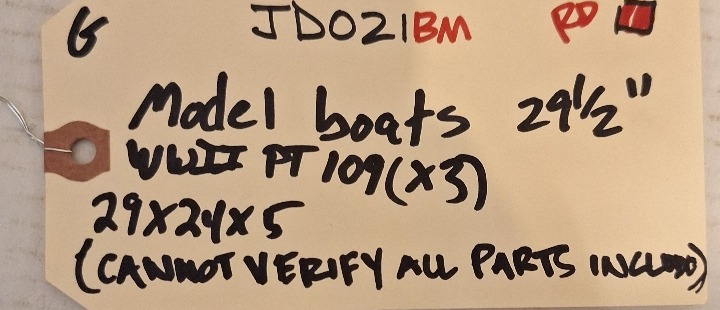 G JD021BM RD
Model boats 29 1/2"
WWII PT 109 (x3)
29x24x5
(CANNOT VERIFY ALL PARTS INCLUDD)